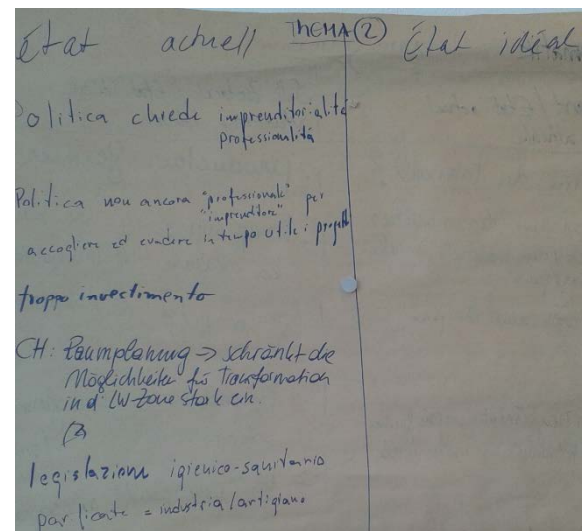 État actuell THEMA 2 État idéal
Politica chiede imprenditorialità
professionalità
Politica non ancora "professionale" per
"imprenditore"
accogliere ed evadere in tempo utile i progetti
troppo investimento
CH: Raumplanung → schränkt die
Möglichkeiten für Transformation
in d. LW-Zone stark ein.
legislazione igienico-sanitario
= industria/artigiano